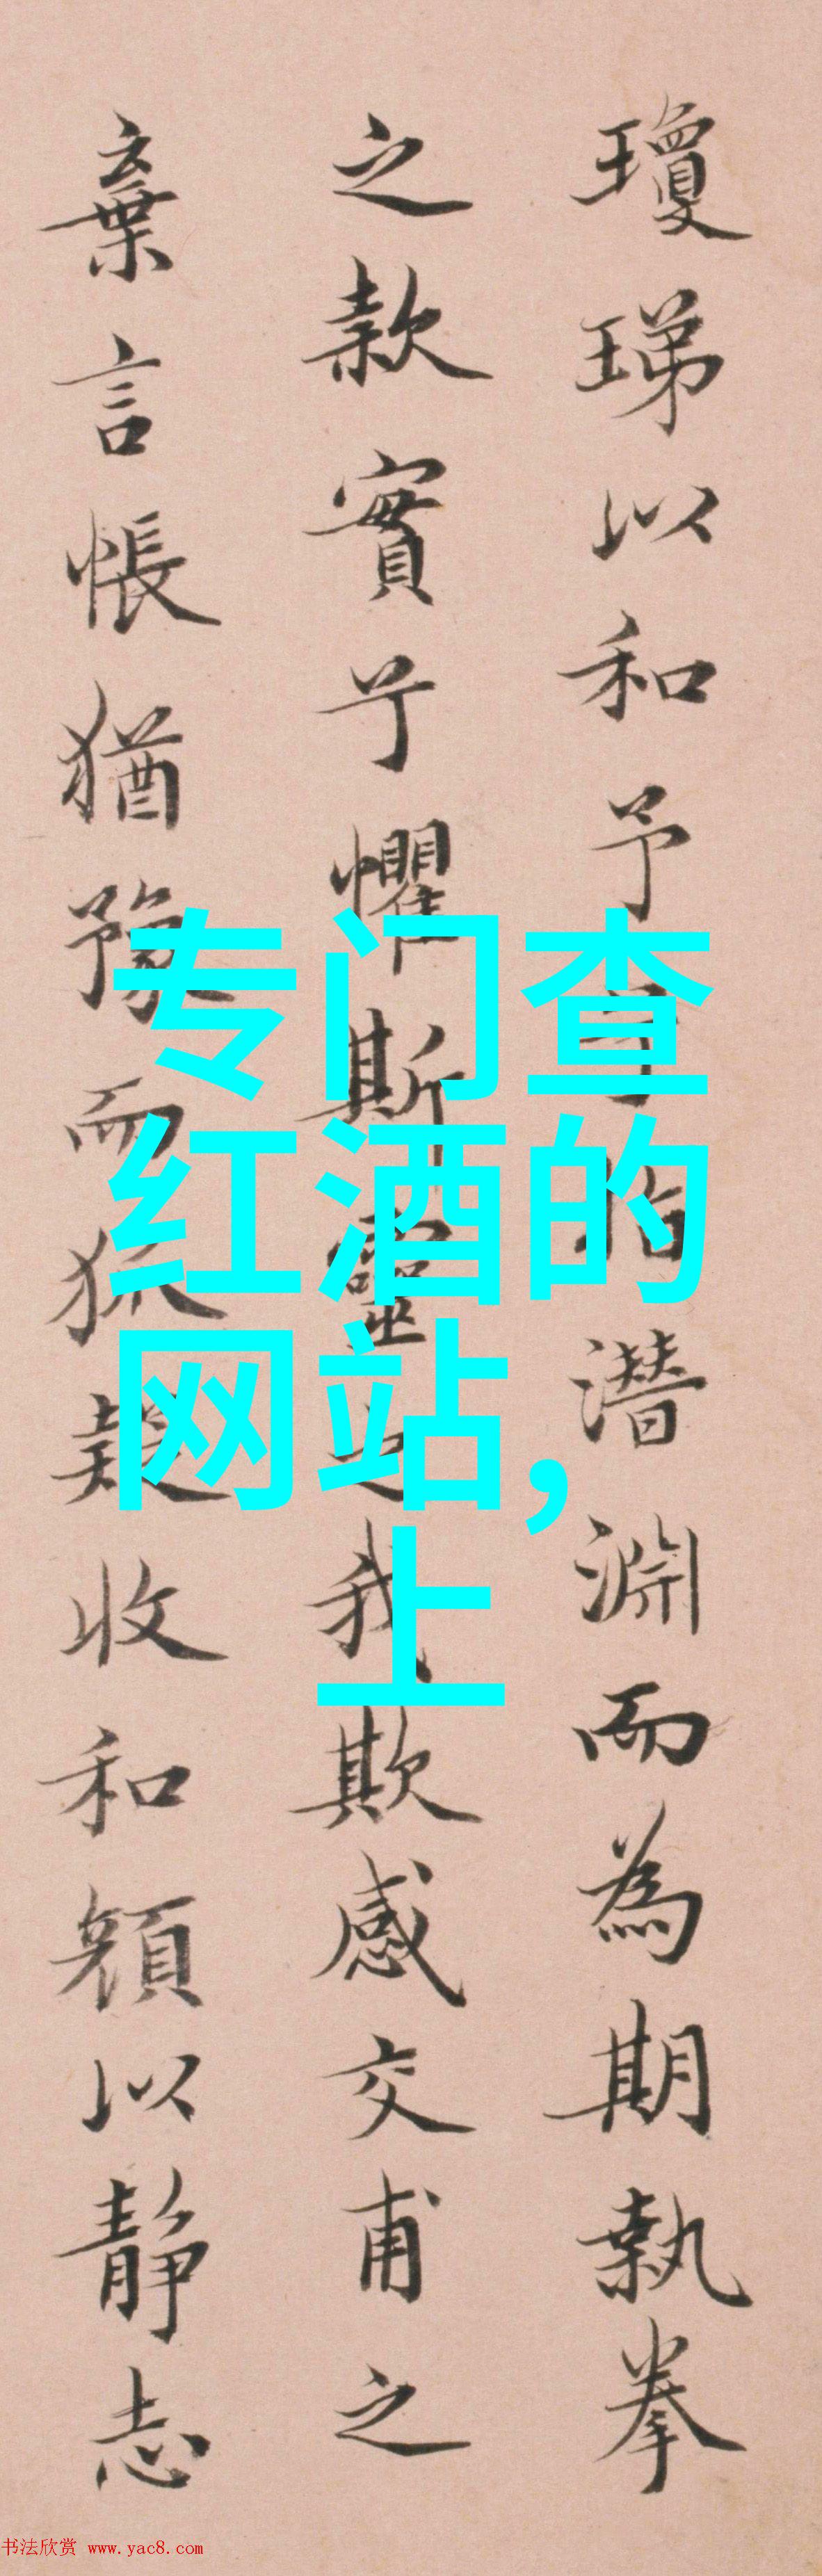 瓊珶以和予指潛淵而為期執拳
之款實兮懼斯靈之我欺感交甫之
棄言悵猶豫而狐疑收和顏以靜志
专门查
红酒的
网站,
上
书法欣赏 www.yac8.com